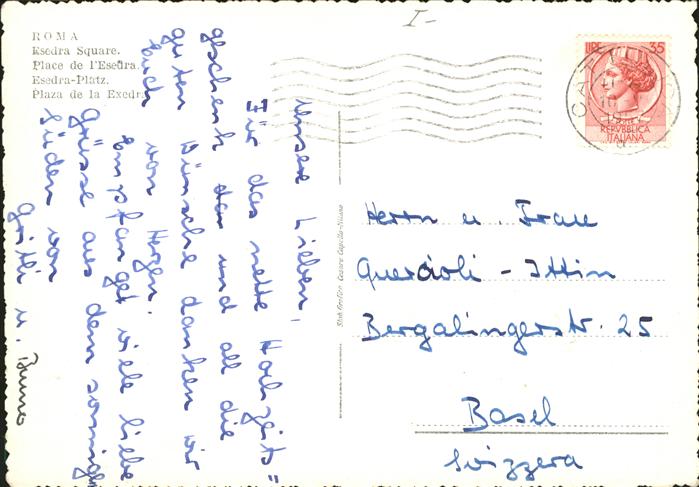 I-
ROMA
Esedra Square.
Place de l'Esedra.
Esedra-Platz.
Plaza de la Exedra
LIRE 35
POSTE
REPVBBLICA
ITALIANA
Unsere Lieben,
Für das nette Hochzeits=
geschenk das und all die
guten Wünsche danken wir
Euch von Herzen.
Empfanget viele liebe
Grüsse aus dem sonnigen
Süden von
Gritli u. Bruno
Herrn u. Frau
Quercioli - Ittin
Bergalingerstr. 25
Basel
Svizzera